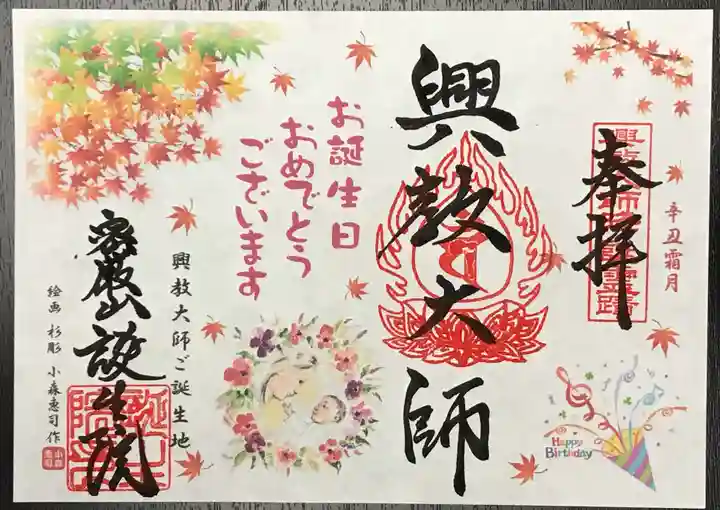 奉拝
辛丑霜月
興教大師
お誕生日
おめでとう
ございます
興教大師ご誕生地
密厳山誕生院
絵画 杉彫 小森惠司作
Happy
Birthday